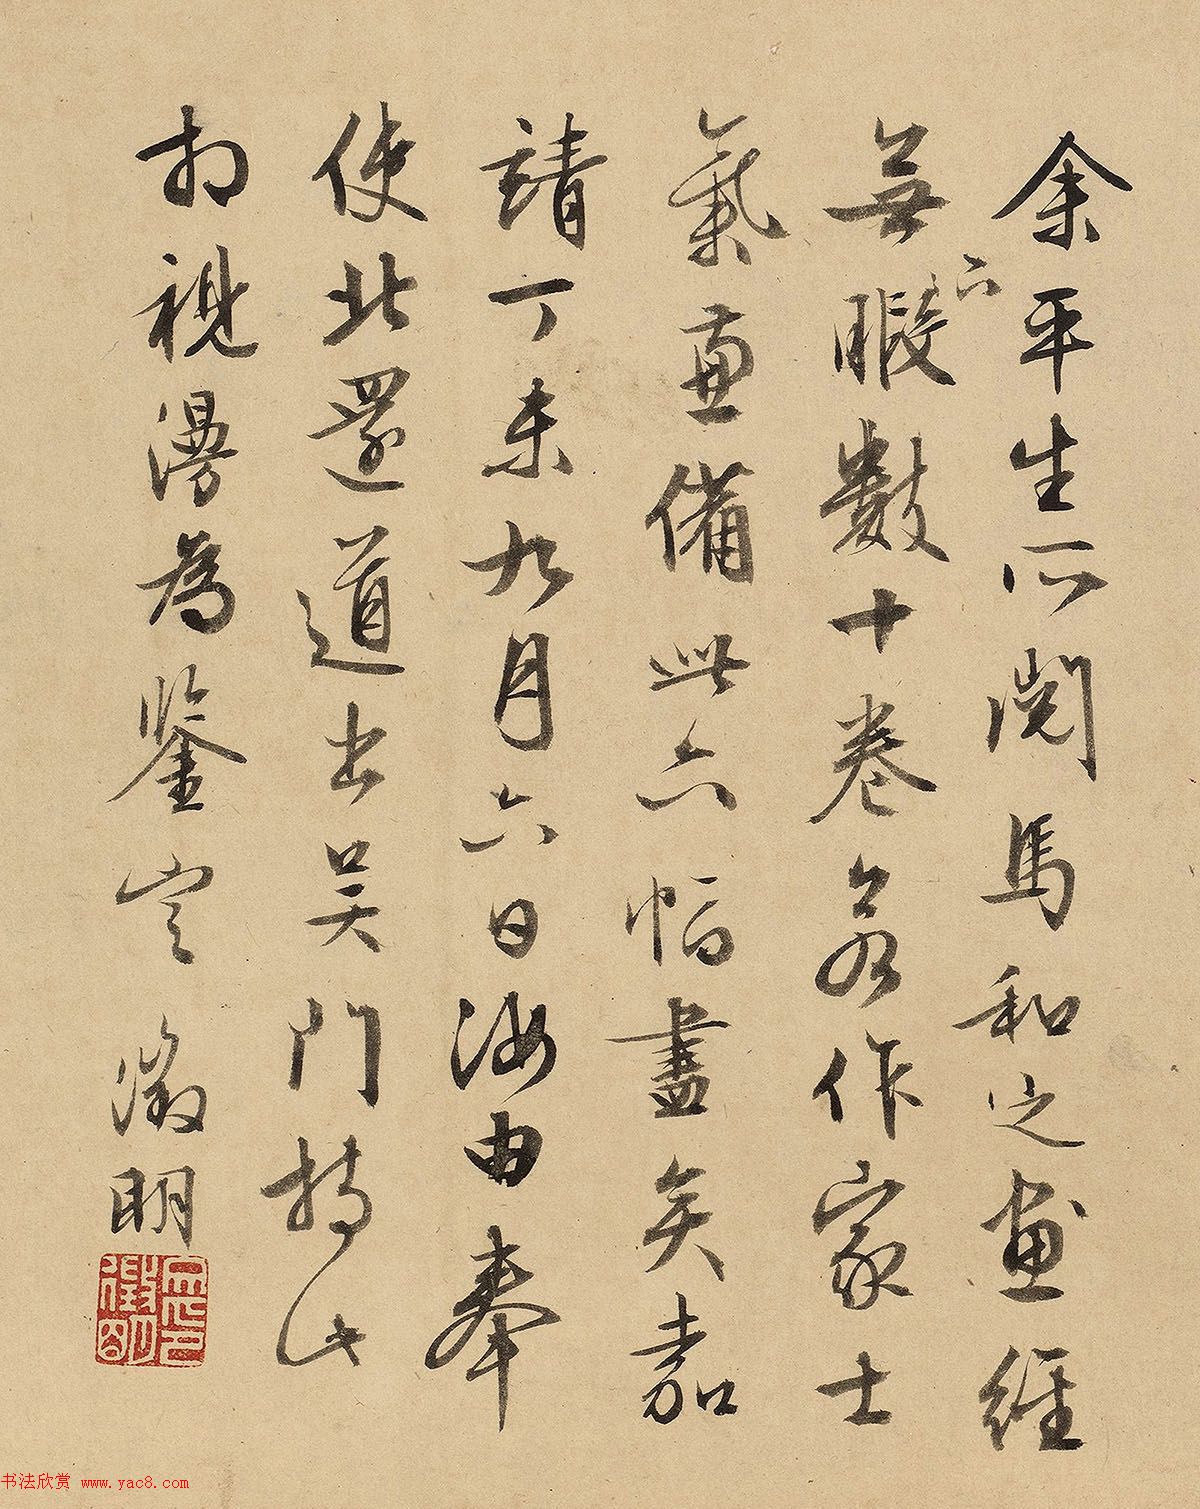 余平生所閱馬和之畫絹
無六暇數十卷若作家士
氣兼備此六幅盡矣嘉
靖丁未九月六日海由奉
使北還道出吳門持此
相視漫為鑒定 徵明
書法欣赏 www.yac8.com